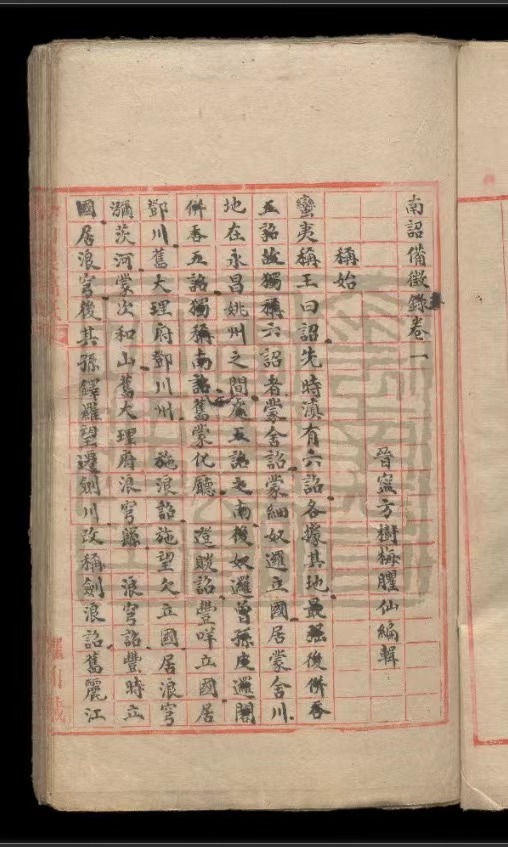 南詔備徵錄卷一
晉寧方樹梅臞仙編輯
稱始
蠻夷稱王曰詔先時滇有六詔各據其地最後併吞
五詔故獨稱六詔者蒙舍詔蒙細奴邏立國居蒙舍川
地在永昌姚州之間居五詔之南後奴邏曾孫皮邏閣
併吞五詔獨稱南詔舊蒙化廳 邆賧詔豐咩立國居
鄧川舊大理府鄧川州 施浪詔施望欠立國居浪穹
瀰茨河蒙次和山舊大理府浪穹縣 浪穹詔豐時立
國居浪穹後其孫鐸羅望遷劍川改稱劍浪詔舊麗江